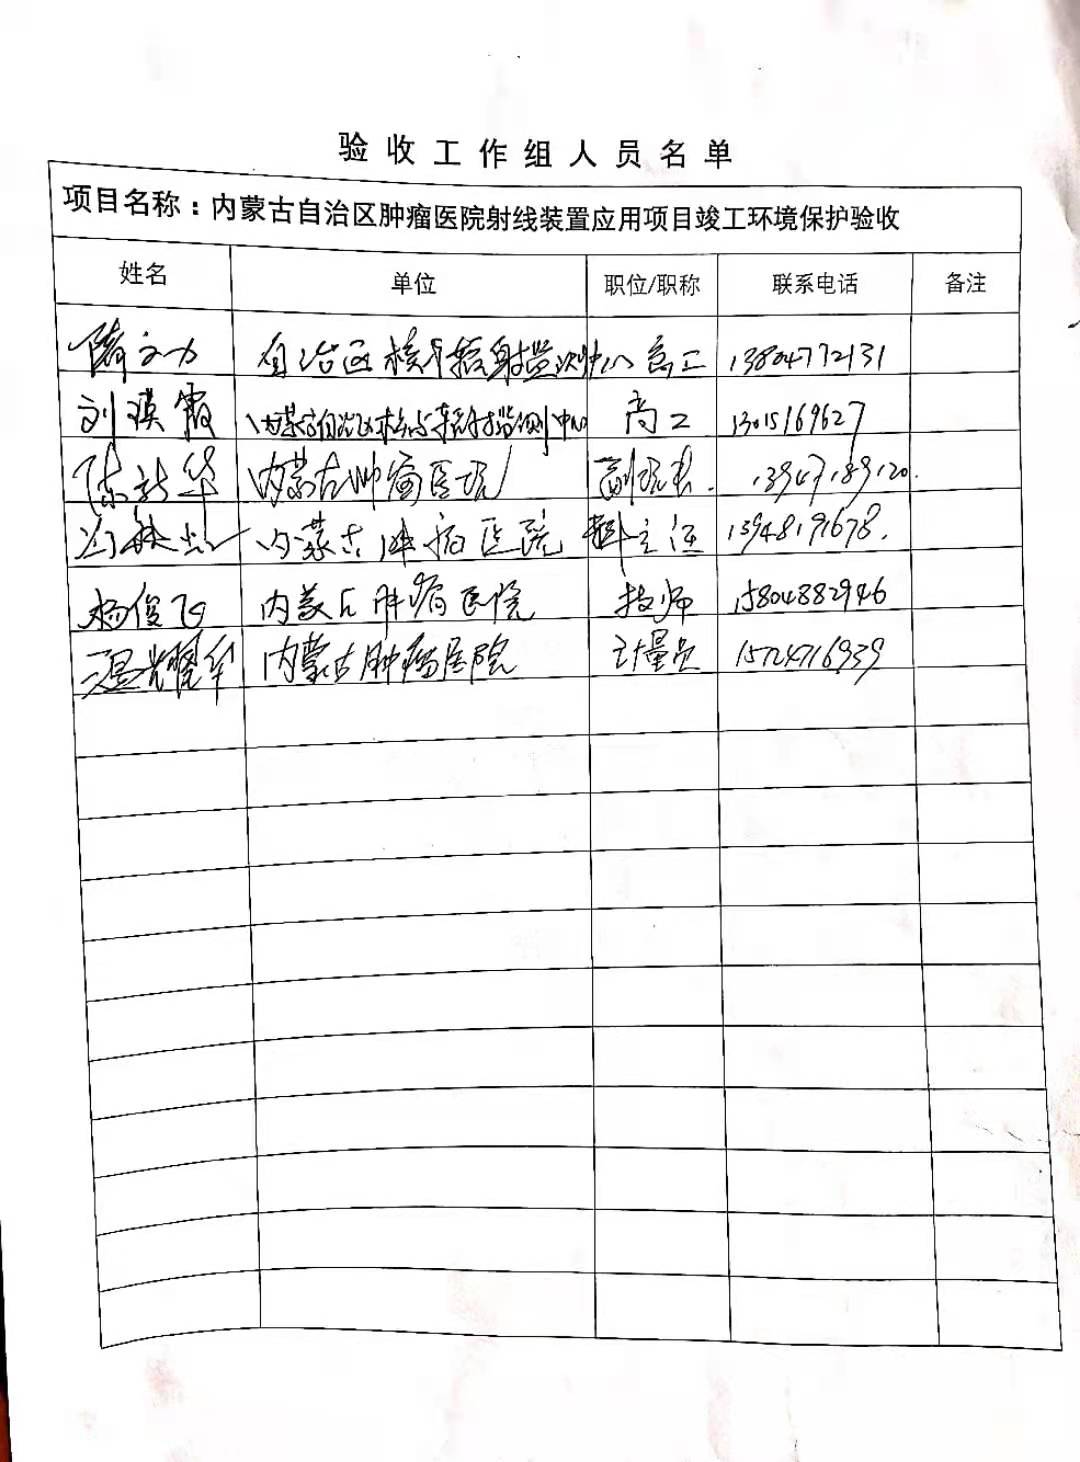 验收工作组人员名单
项目名称：内蒙古自治区肿瘤医院射线装置应用项目竣工环境保护验收
姓名 单位 职位/职称 联系电话 备注
自治区核与辐射监测中心 高工 13804772131
刘瑛霞 内蒙古自治区核与辐射监测中心 高工 13015169627
陈新华 内蒙古肿瘤医院 副院长 13947189120
内蒙古肿瘤医院 科主任 13948191678
杨俊飞 内蒙古肿瘤医院 技师 15804882946
内蒙古肿瘤医院 计量员 15124716939